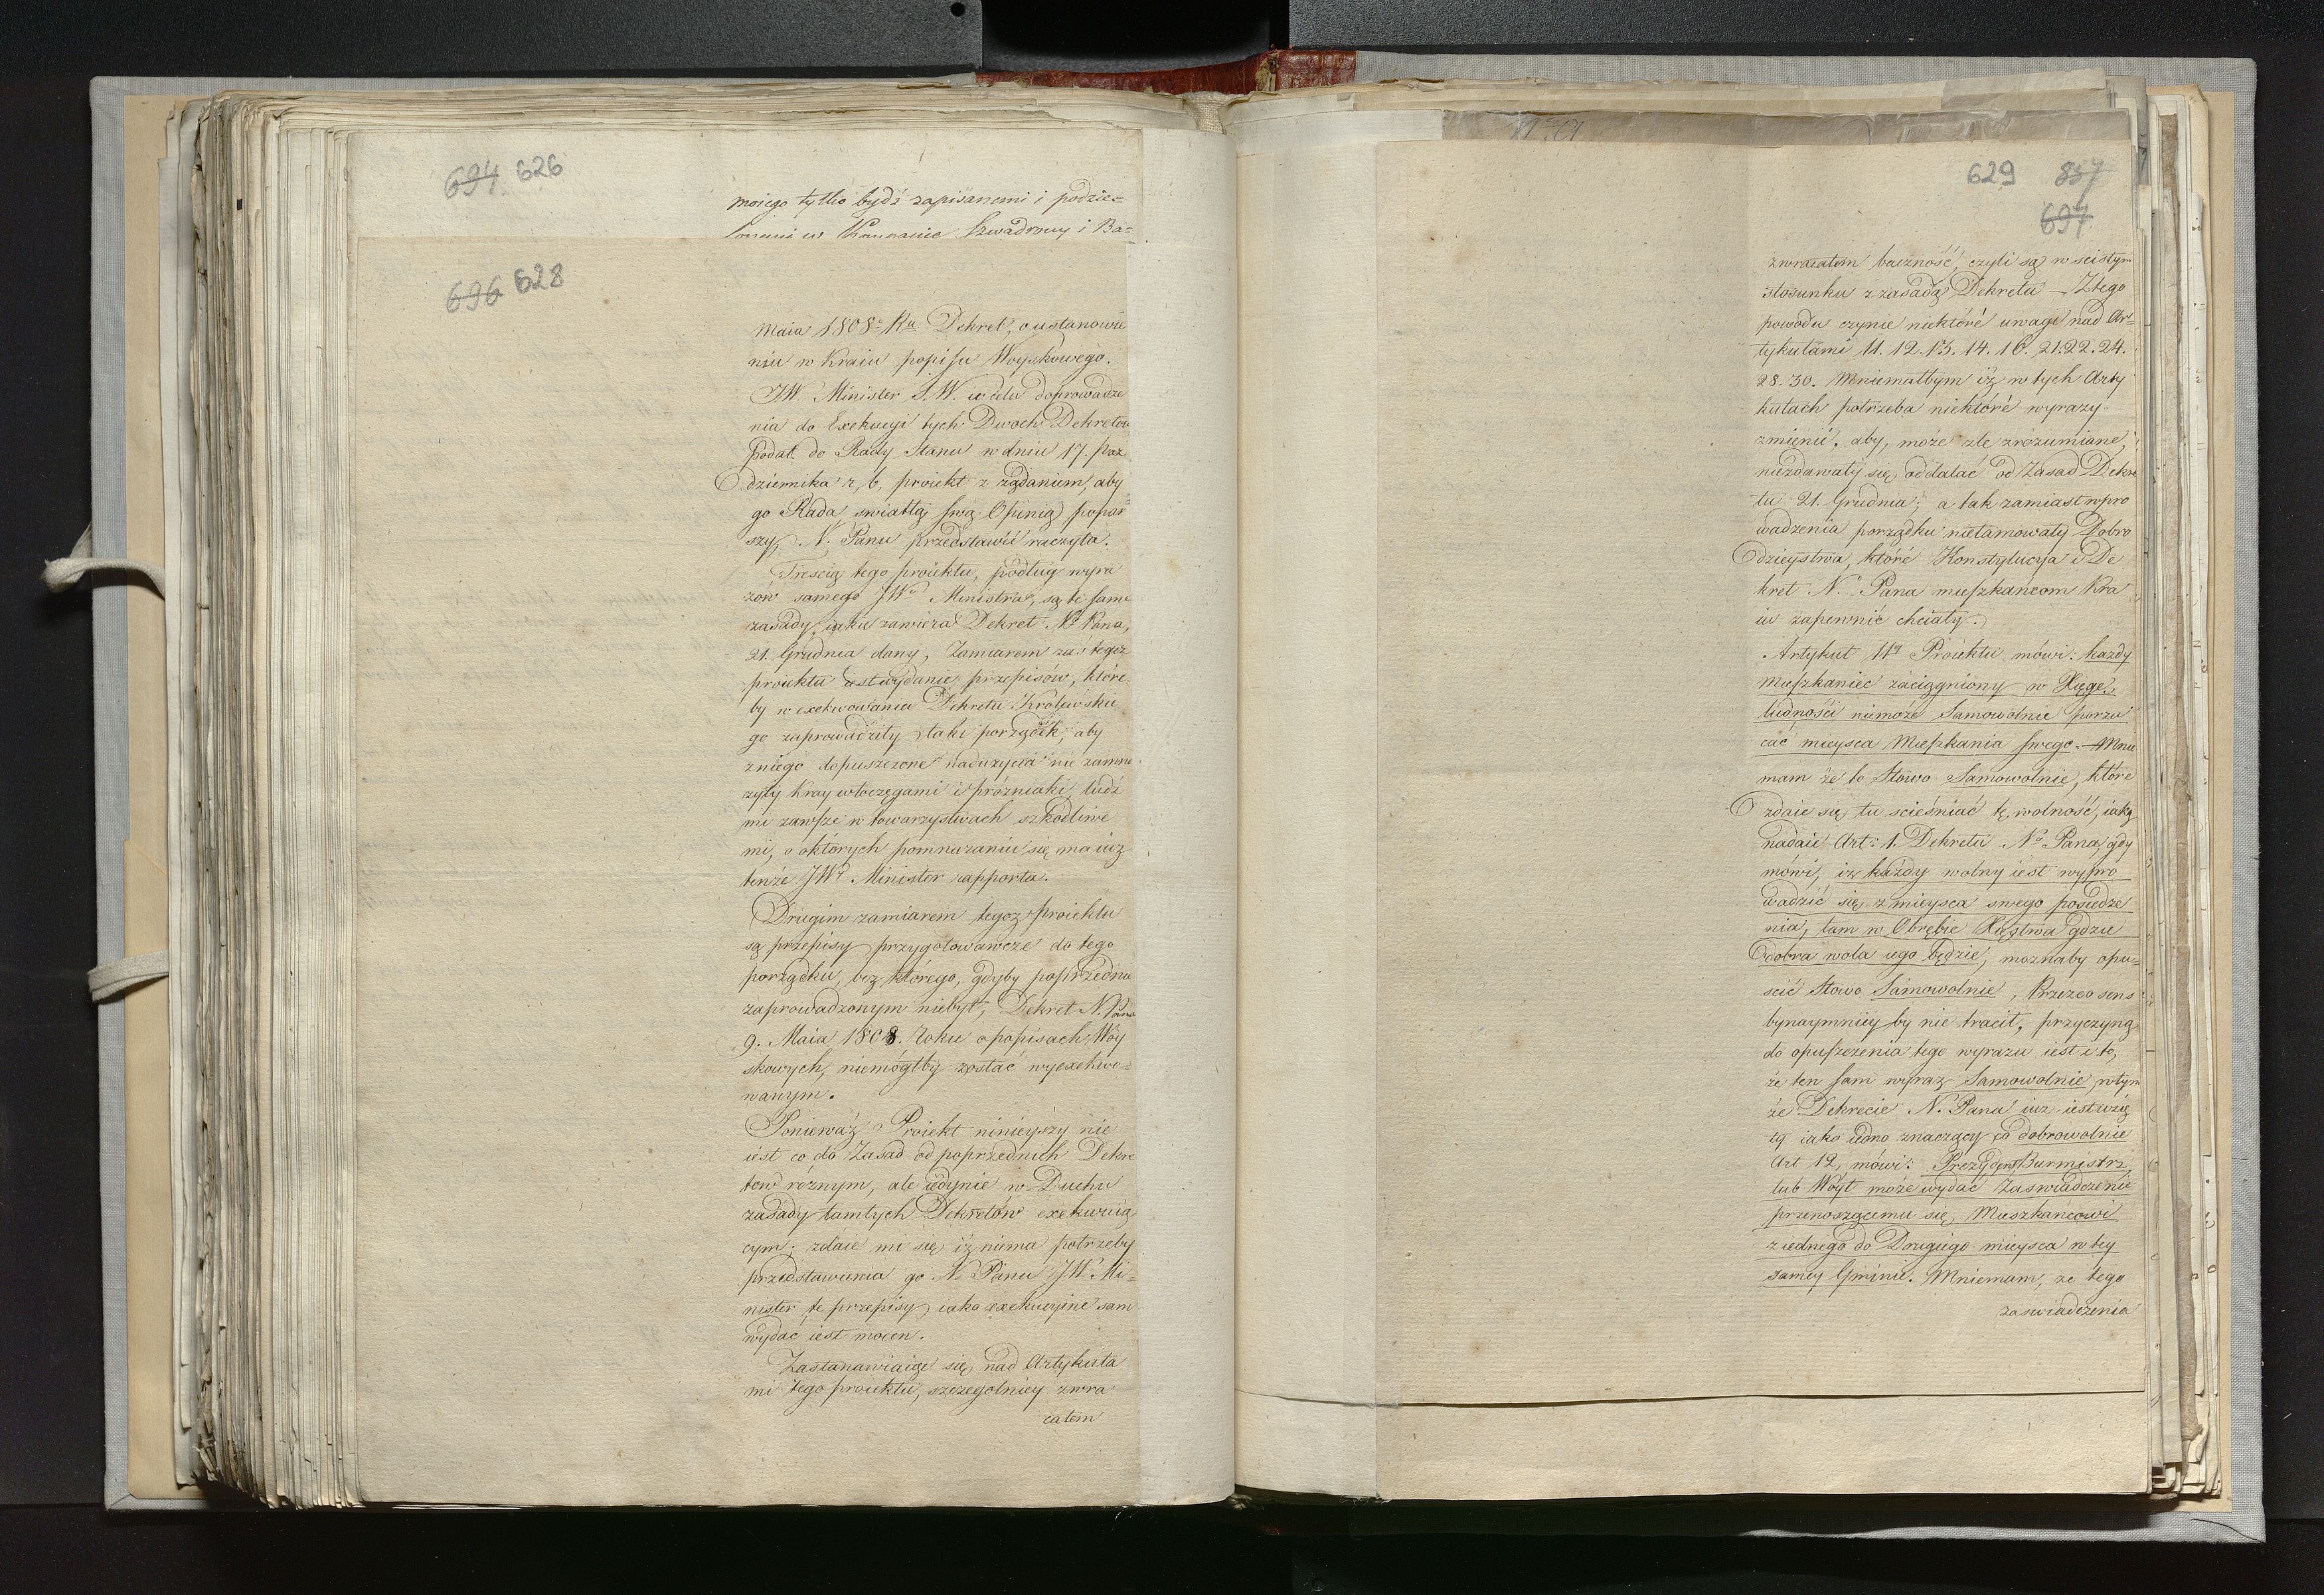 694 626
moiego tylko bydź zapisanemi i podzie=
Szwadrony i Ba=
696 628
Maia 1808. Ru Dekret, o ustanowie
niu w Kraiu popisu Woyskowego.
JW. Minister S. W. w celu doprowadze
nia do Exekucyi tych Dwoch Dekretow
Podał do Rady Stanu w dniu 17. Paz
dziernika r, b, proiekt z rządaniem, aby
go Rada swiatłą swą Opinią popar
szy, N. Panu przedstawić raczyła.
Trescią tego proiektu, podług wyra
zów samego JWo Ministra, są te same
zasady, iakie zawiera Dekret No Pana,
21. Grudnia dany, Zamiarem zaś tegoz
proiektu iest wydanie przepisów, które
by w exekwowaniu Dekretu Królewskie
go zaprowadziły taki porządek, aby
zniego dopuszczone nadużycia nie zamno
zyły Kray włoczęgami i próżniaki, ludź
mi zawsze w towarzystwach szkodliwe
mi, o których pomnazaniu się ma iuz
tenże JWy Minister rapporta.
Drugim zamiarem tegoz proiektu
są przepisy przygotowawcze do tego
porządku, bez którego, gdyby poprzednio
zaprowadzonym niebył, Dekret N. Pana
9. Maia 1808. roku o popisach Woy
skowych, niemógłby zostać wyexekwo=
wanym.
Ponieważ Proiekt ninieyszy nie
iest co do Zasad od poprzednich Dekre
tow róznym, ale iedynie w Duchu
zasady tamtych Dekretów exekwuią
cym; zdaie mi się iż niema potrzeby
przedstawienia go No Panu JW. Mi=
nister te przepisy, iako exekucyine sam
wydać iest mocen.
Zastanawiaiąc się nad Artykuła
mi tego proiektu, szczegolniey zwra
całem
629 857
697
zwracałem baczność, czyli są w scisłym
stosunku z zasadą Dekretu – Ztego
powodu czynie niektóré uwagi nad Ar=
tykułami 11. 12. 13. 14. 16. 21. 22. 24.
28. 30. Mniemałbym iż w tych Arty
kułach potrzeba niektóré wyrazy
zmienić, aby, może zle zrozumiane,
niezdawały się oddalać od Zasad Dekre
tu 21. Grudnia; a tak zamiast wpro
wadzenia porządku nietamowały Dobro
dzieystwa, któré Konstytucya i De
kret No Pana mieszkańcom Kra
iu zapewnić chciały.
Artykuł 11ty Proiektu mówi: każdy
mieszkaniec zaciągniony w Xięgę
ludności niemoże Samowolnie porzu
cać mieysca Mieszkania swego. – Mnie
mam że to Słowo Samowolnie, które
zdaie się tu scieśniać tę wolność, iaką
nadaie Art: 1. Dekretu No Pana, gdy
mówi, iz każdy wolny iest wypro
wadzić się z mieysca swego posiedze
nia, tam w Obrębie Xięstwa gdzie
dobra wola iego będzie, moznaby opu=
scić Słowo Samowolnie, Przezco sens
bynaymniey by nie tracił, przyczyną
do opuszczenia tego wyrazu iest i to,
że ten sam wyraz Samowolnie w tym
że Dekrecie N. Pana iuz iest wzię
ty iako iedno znaczący co dobrowolnie
Art 12, mówi: Prezydent Burmistrz
lub Wóyt może wydać Zaswiadczenie
przenoszącemu się Mieszkańcowi
z iednego do Drugiego mieysca w tey
samey Gminie. Mniemam, ze tego
zaswiadczenia